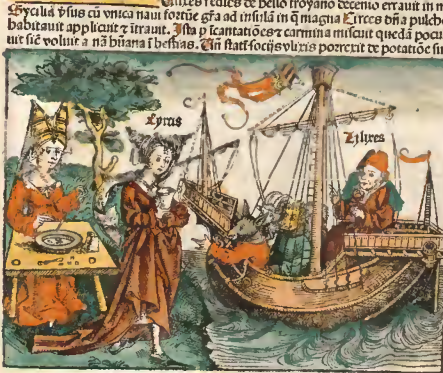 Vlixes rediēs de bello troyano decenio errauit in m
Sycilia ꝟsus cū vnica naui fortūe gr̄a ad insulā in q̄ magna Circes dn̄a pulch
habitauit applicuit ⁊ itraut. Ista p icantatiōes ⁊ carmina miscuit quedā pocu
uit sic̄ voluit a nā hūana ī bestias. Uñ statī socijs vlixis porrexit de potatiōe
Cyrus
Vlixes